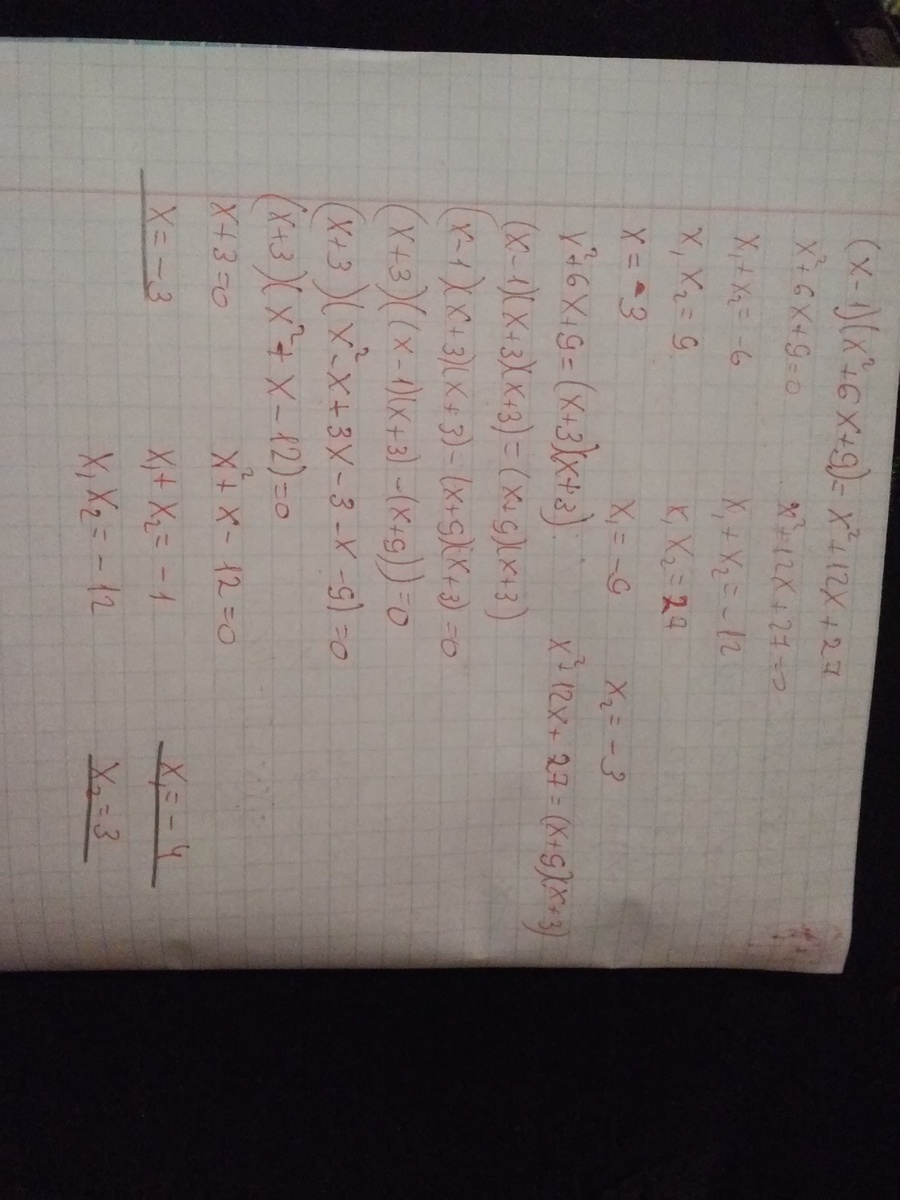 (x-1)(x²+6x+9)=x²+12x+27
x²+6x+9=0 x²+12x+27=0
x₁+x₂=-6 x₁+x₂=-12
x₁x₂=9 x₁x₂=27
x=-3 x₁=-9 x₂=-3
x²+6x+9=(x+3)(x+3) x²+12x+27=(x+9)(x+3)
(x-1)(x+3)(x+3)=(x+9)(x+3)
(x-1)(x+3)(x+3)-(x+9)(x+3)=0
(x+3)((x-1)(x+3)-(x+9))=0
(x+3)(x²-x+3x-3-x-9)=0
(x+3)(x²+x-12)=0
x+3=0 x²+x-12=0
x=-3 x₁+x₂=-1 x₁=-4
x₁x₂=-12 x₂=3